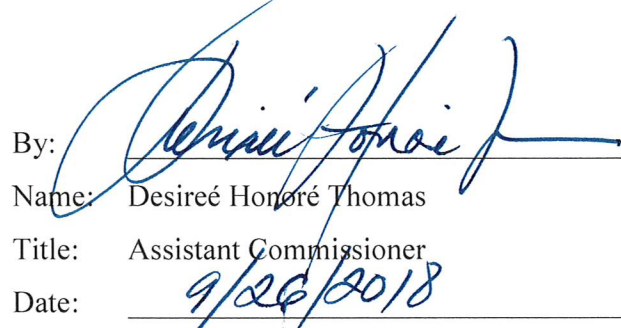 By:
Name: Desireé Honoré Thomas
Title: Assistant Commissioner
Date: 9/26/2018